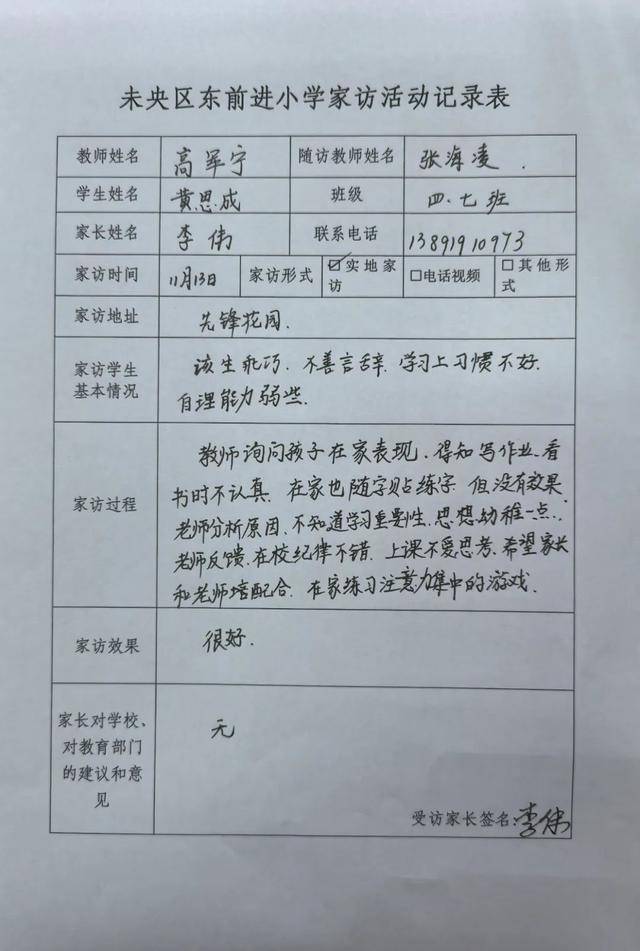 未央区东前进小学家访活动记录表
教师姓名 高军宁 随访教师姓名 张海凌.
学生姓名 黄思成 班级 四.七班
家长姓名 李伟 联系电话 13891910973
家访时间 11月13日 家访形式 ☑实地家访 □电话视频 □其他形式
家访地址 先锋花园.
家访学生基本情况
该生乖巧.不善言辞.学习上习惯不好.
自理能力弱些.
家访过程
教师询问孩子在家表现.得知写作业.看
书时不认真.在家也随字贴练字.但没有效果.
老师分析原因.不知道学习重要性.思想幼稚一点.
老师反馈.在校纪律不错.上课不爱思考.希望家长
和老师配合.在家练习注意力集中的游戏.
家访效果 很好.
家长对学校、
对教育部门
的建议和意
见
无
受访家长签名:李伟